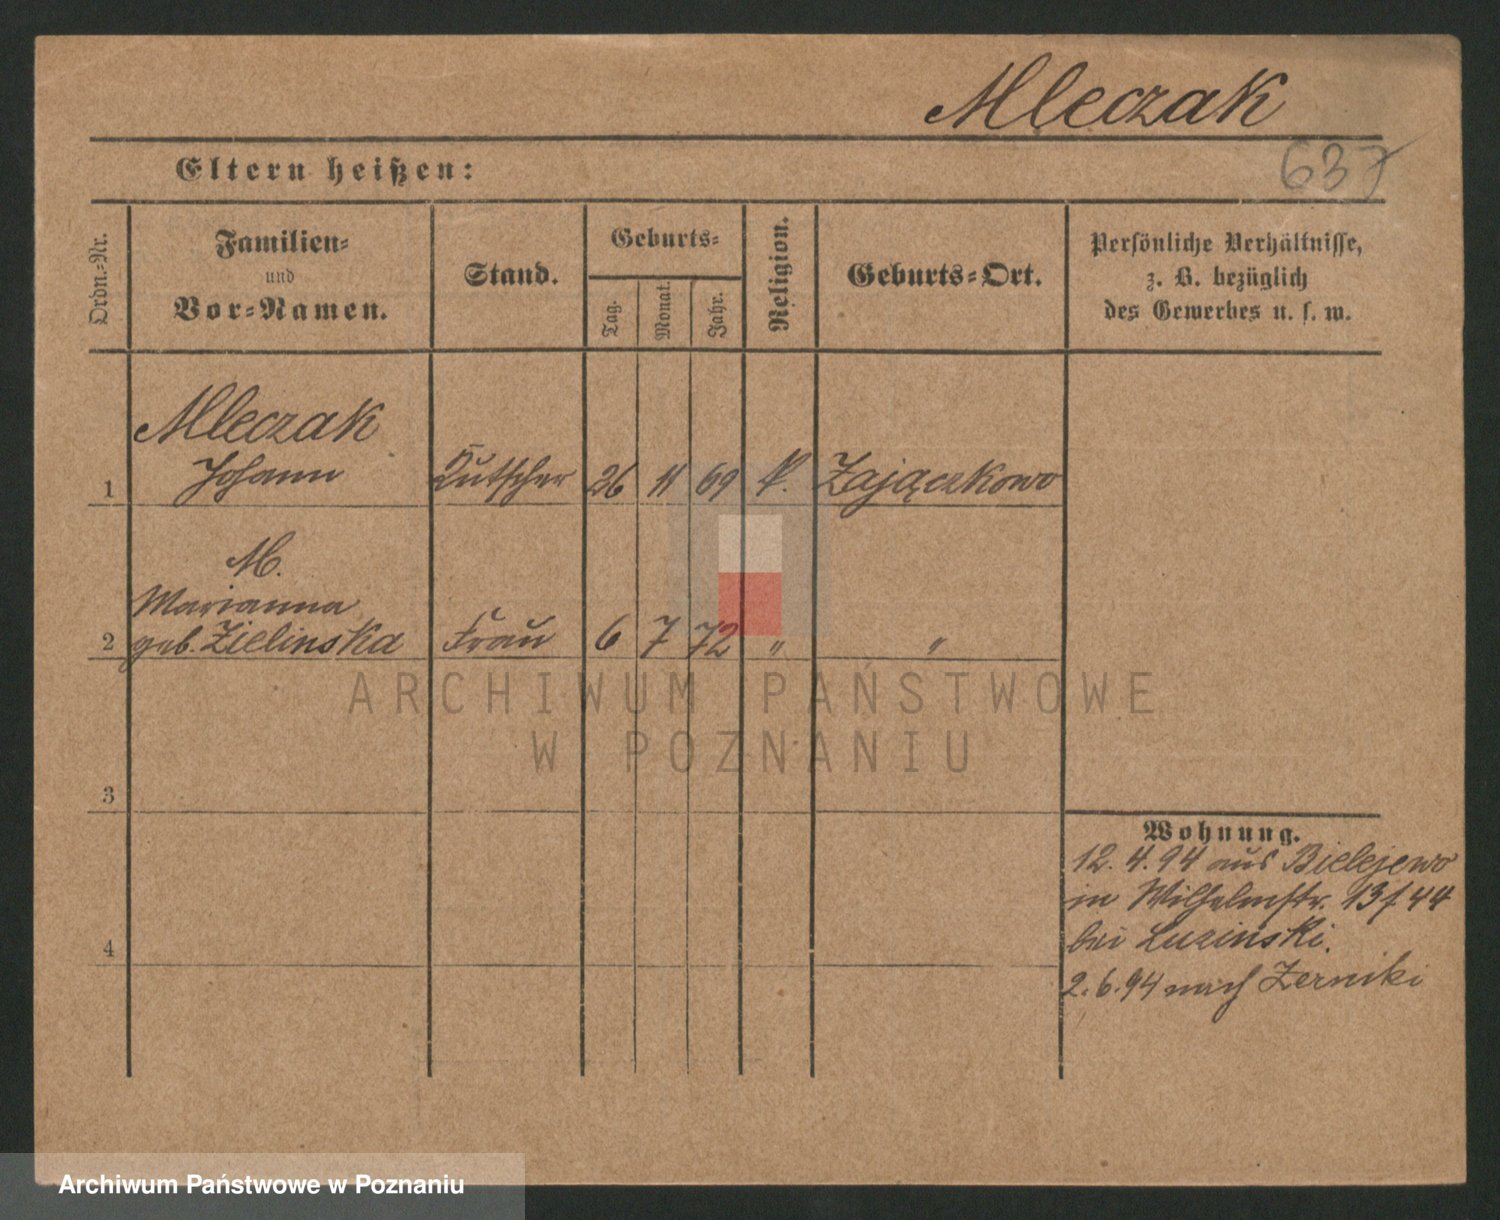 Mleczak
637
Eltern heißen:
Ordn.=Nr.
Familien=
und
Vor=Namen.
Stand.
Geburts=
Tag.
Monat.
Jahr.
Religion.
Geburts=Ort.
Persönliche Verhältnisse,
z. B. bezüglich
des Gewerbes u. s. w.
Mleczak
1 Johann Kutscher 26 11 69 k. Zajączkowo
M.
Marianna
2 geb. Zielinska Frau 6 7 72 " "
3
4
Wohnung.
12. 4. 94 aus Bielejewo
in Wilhelmstr. 13/44
bei Luzinski.
2. 6. 94 nach Zerniki
ARCHIWUM PAŃSTWOWE
W POZNANIU
Archiwum Państwowe w Poznaniu